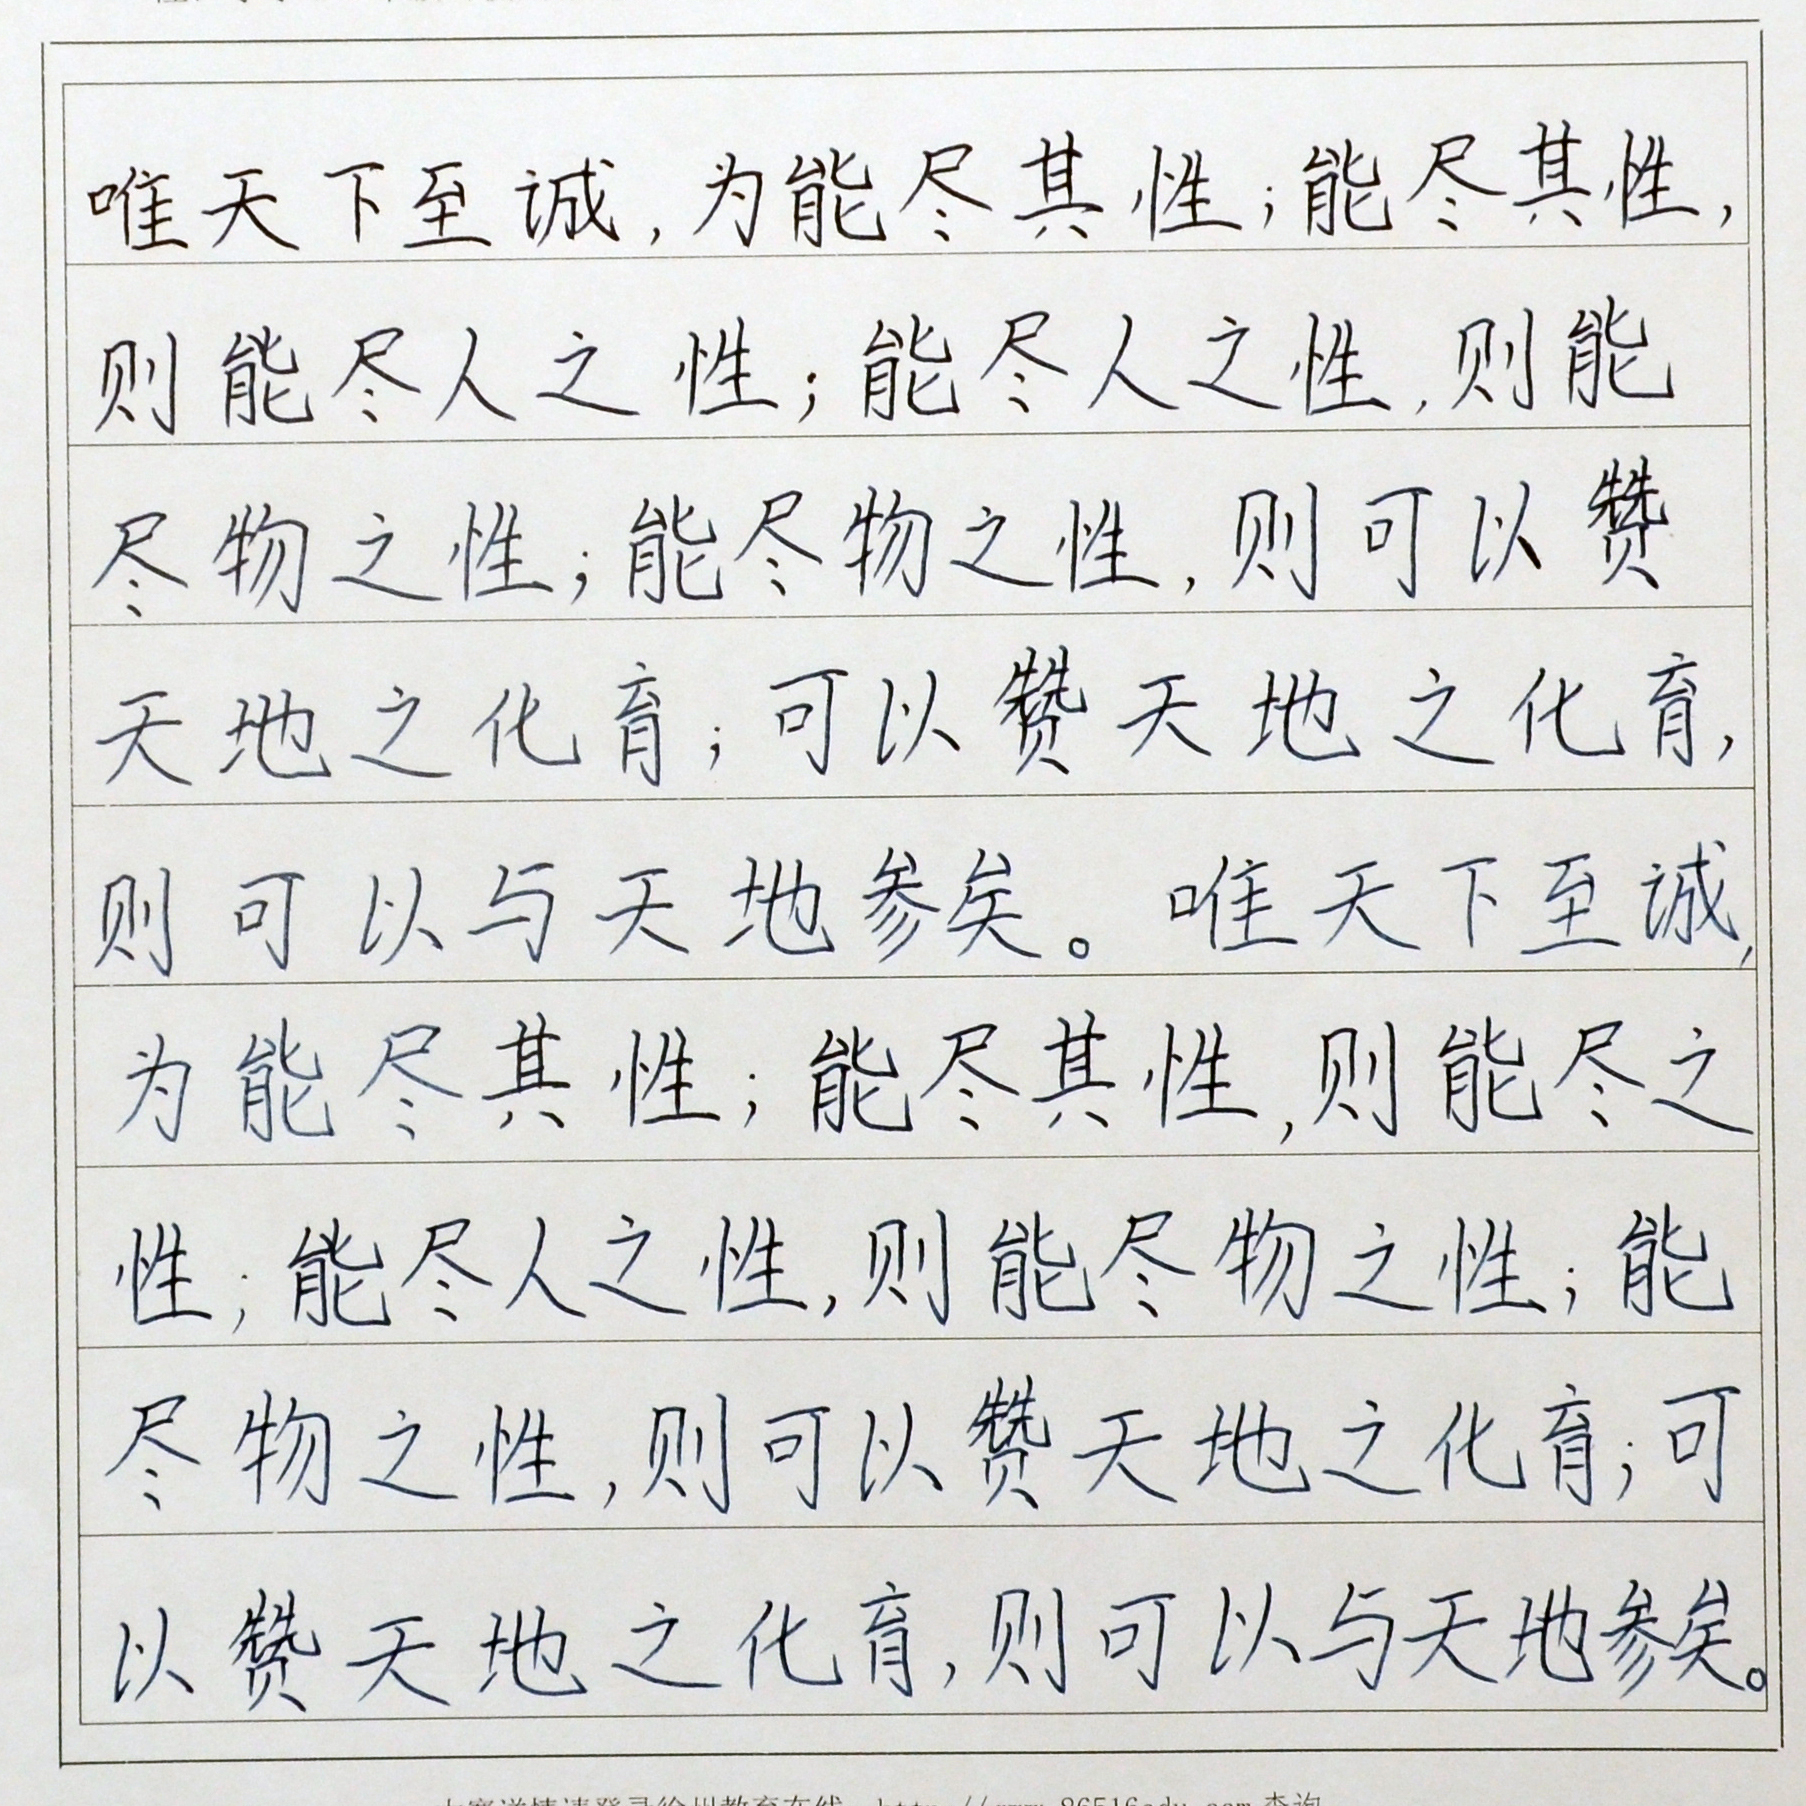 唯天下至诚,为能尽其性;能尽其性,
则能尽人之性;能尽人之性,则能
尽物之性;能尽物之性,则可以赞
天地之化育;可以赞天地之化育,
则可以与天地参矣。唯天下至诚,
为能尽其性;能尽其性,则能尽之
性;能尽人之性,则能尽物之性;能
尽物之性,则可以赞天地之化育;可
以赞天地之化育,则可以与天地参矣。